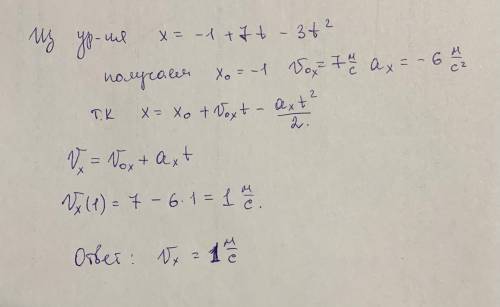 Из ур-ия x = -1 + 7t - 3t²
получаем x₀ = -1 v₀ₓ = 7 м/с aₓ = -6 м/с²
т.к x = x₀ + v₀ₓt - aₓt²/2.
vₓ = v₀ₓ + aₓt
vₓ(1) = 7 - 6·1 = 1 м/с.
Ответ: vₓ = 1 м/с